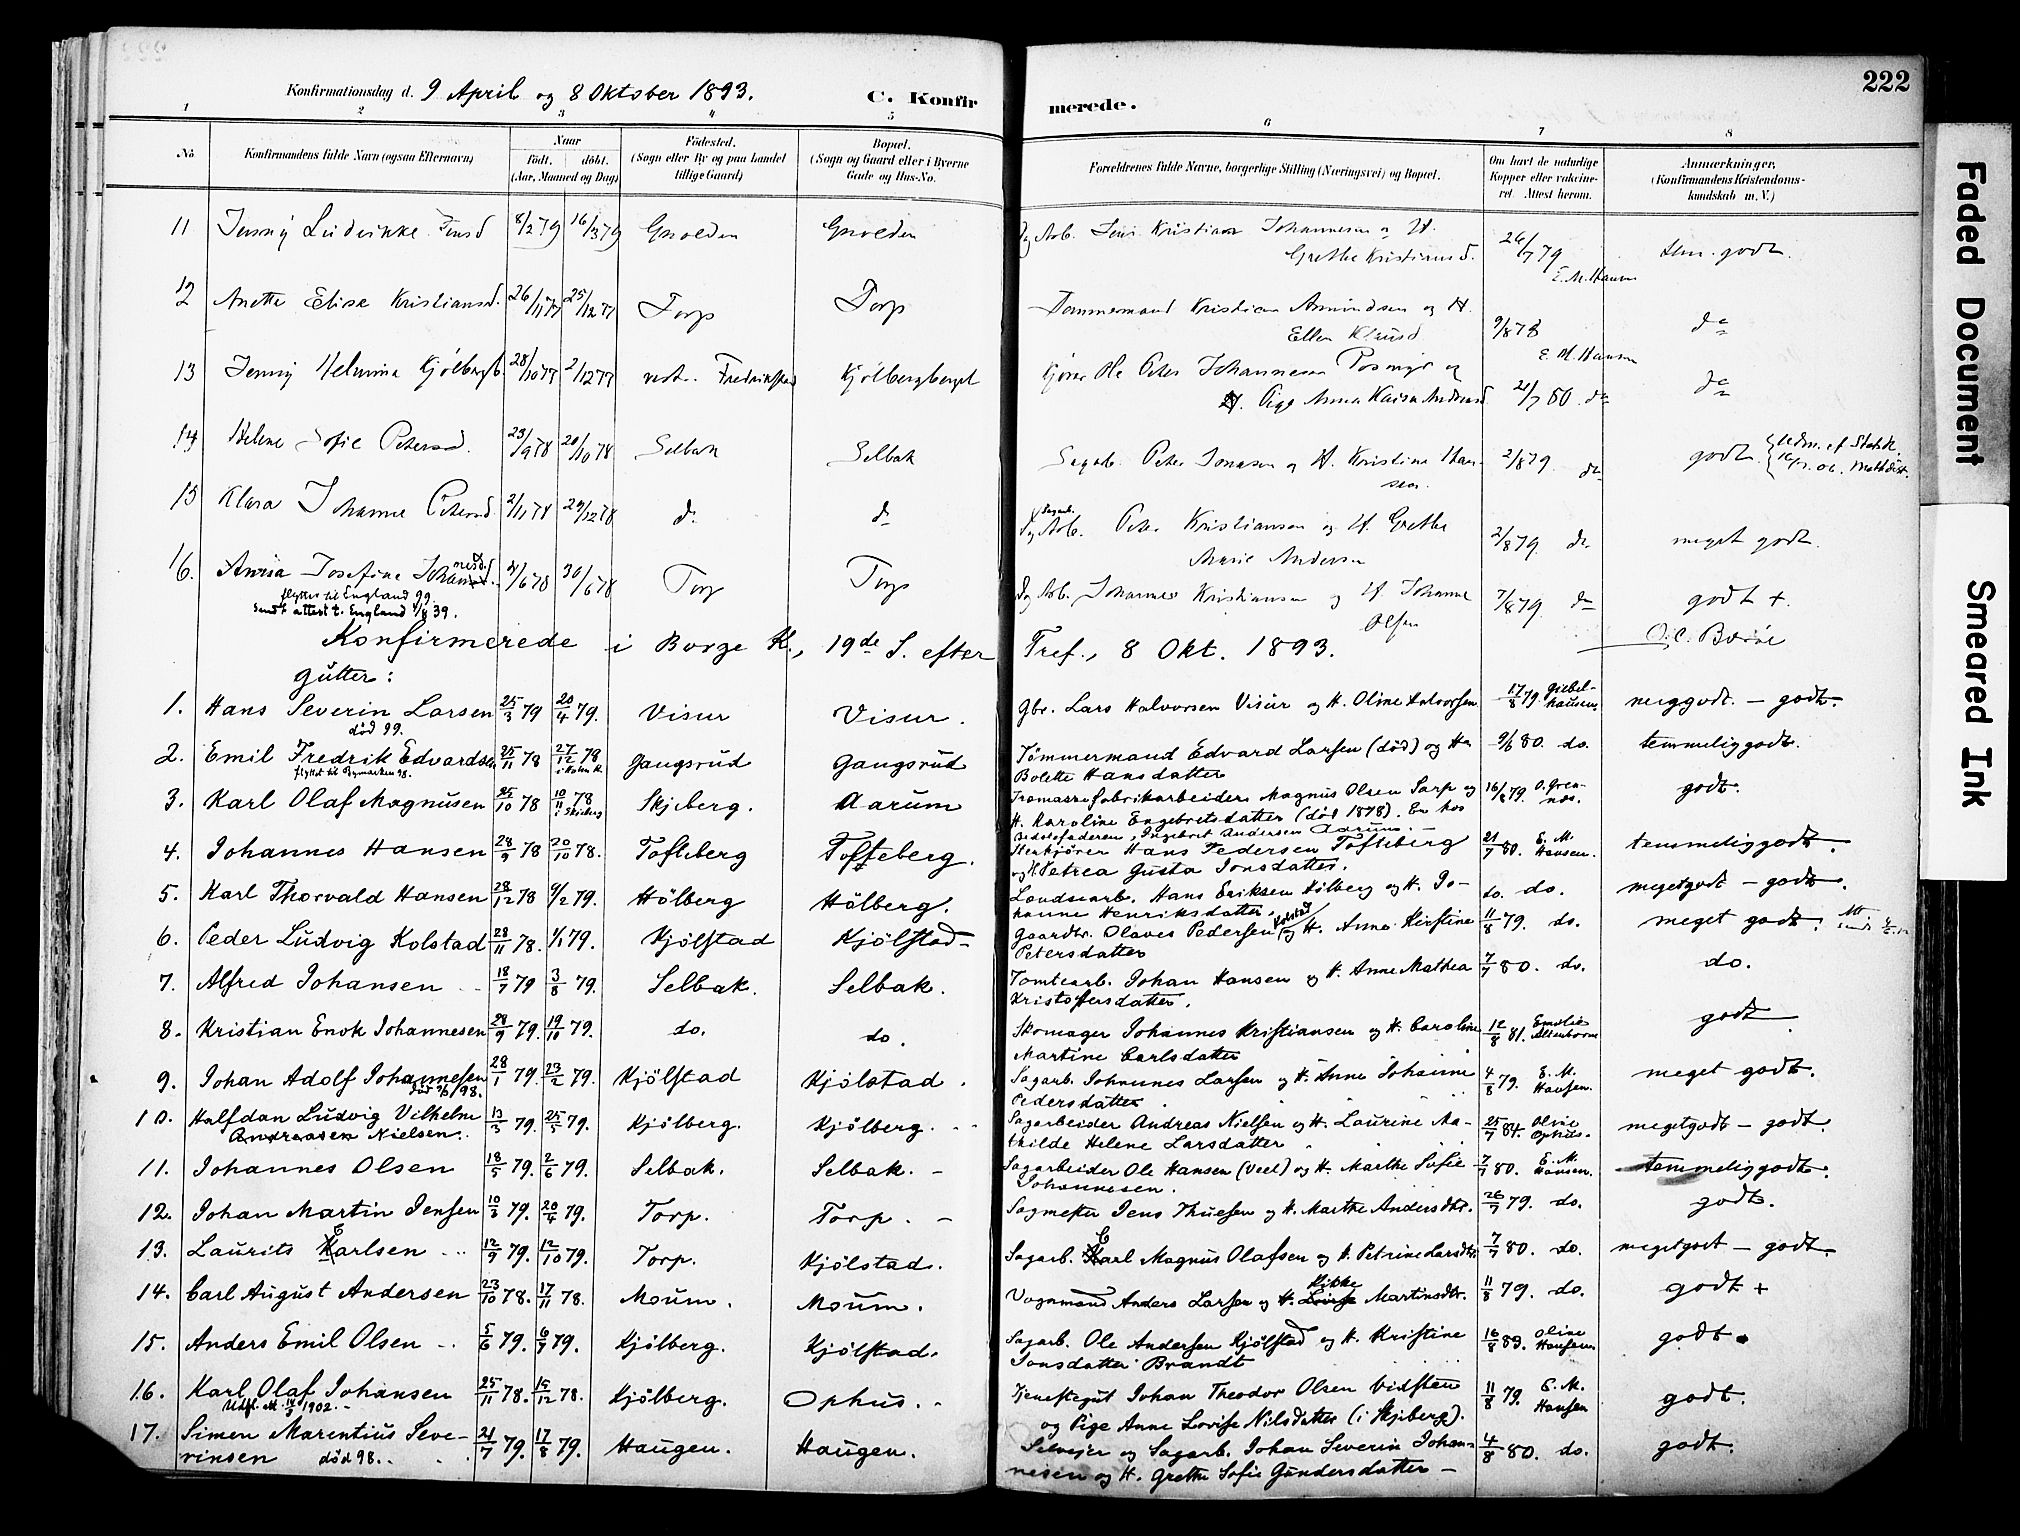 222
Konfirmationsdag d. 9 April og 8 Oktober 1893. C. Konfirmerede.
1 2 3 4 5 6 7 8
No. Konfirmandens fulde Navn (ogsaa Efternavn) Naar Födt. döbt. (Aar, Maaned og Dag) Födested. (Sogn eller By og paa landet tillige Gaard) Bopæl. (Sogn og Gaard eller i Byerne Gade og Hus-No. Forældrenes fulde Navne, borgerlige Stilling (Næringsvei) og Bopæl. Om havt de naturlige Kopper eller vaccineret. Attest herom. Anmærkninger, (Konfirmandens Kristendomskundskab m. V.)
11 Jenny Ludvikke 8/2 79 16/3 79 Johannesen og H.
Grethe Kristiansd. 26/7 79 E. M. Hansen tem. godt.
12 Anette Elise Kristiansd. 26/11 77 25/12 77 Torp Torp Tømmermand Kristian Amundsen og H.
Ellen 9/8 78 E. M. Hansen do
13 Jenny Kjölbergb. 28/10 77 2/12 77 Fredrikstad Kjölbergberget Ole Peter Johannesen og
H. Pige Anna Karin 21/7 80 do do
14 Helene Sofie Petersd. 23/9 78 20/10 78 Selbak Selbak Sagarb. Peter Jonasen og H. Kristine Hansen. 2/8 79 do godt.
15 Klara Johanne Petersd. 2/11 78 29/12 78 do do Dag Arb. Peter Kristiansen og H. Grethe
Marie Andersen 2/8 79 do meget godt.
16. Anna Josefine 2/6 78 30/6 78 Torp Torp Dag Arb. Johannes Kristiansen og H. Johanne
Olsen 7/8 79 do godt +
flyttet til England 99.
sendt attest t. England 1/8 39.
Konfirmerede i Borge K., 19de S. efter Tref., 8 Okt. 1893.
Gutter:
1. Hans Severin Larsen 25/3 79 20/4 79. Visur Visur. Gbr. Lars Halvorsen Visur og H. Oline Halvorsen 17/8 79 Giebelhausen. megetgodt. – godt.
død 99.
2. Emil Fredrik Edvardsen 25/11 78 27/12 78 i Holen K. Gangsrud Gangsrud Tømmermand Edvard Larsen (død) og Ha
Bolette Hansdatter 9/6 80. do. temmeliggodt.
flyttet til Bymarken 98.
3. Karl Olaf Magnusen 25/10 78 10/11 78 i Skjeberg Skjeberg. Aarum fabrikarbeider Magnus Olsen Sarp og
H. Karoline Engebretsdatter (død 1878). En hos
Bedstefaderen, Ingebret Andersen Aarum. – 16/8 79. godt.
4. Johannes Hansen 28/9 78 20/10 78. Tofteberg Tofteberg. Hans Pedersen Tofteberg
og H. Petrea Gusta Jonsdatter. 21/7 80. E. M. Hansen. temmeliggodt.
5. Karl Thorvald Hansen 28/12 78 9/2 79. Hölberg Hölberg. Landsearb. Hans Eriksen Hölberg og H. Johanne Henriksdatter. do. do. megetgodt – godt.
6. Peder Ludvig Kolstad 28/11 78. 1/1 79. Kjölstad Kjölstad Gaardbr. Olaves Pedersen Kolstad og H. Anna Kirstine
Petersdatter 11/8 79. do. meget godt.
7. Alfred Johansen 18/7 79 3/8 79. Selbak. Selbak. Tomtearb. Johan Hansen og H. Anne Mathea
Kristoffersdatter. 7/7 80. do. do.
8. Kristian Enok Johannesen 28/9 79. 19/10 79. do. do. Skomager Johannes Kristiansen og H. Caroline
Martine Carlsdatter 12/8 81. Emilie godt
9. Johan Adolf Johannesen 28/1 79. 23/2 79. Kjölstad Kjölstad. Sagarb. Johannes Larsen og H. Anne Johanne
Pedersdatter. 4/8 79. E. M. Hansen. meget godt.
10. Halfdan Ludvig Vilhelm
Andreasen Nielsen. 13/3 79. 25/5 79. Kjölberg. Kjölberg. Sagarbeider Andreas Nielsen og H. Laurine Mathilde Helene Larsdatter 25/7 84. Oline Ophus. megetgodt – godt.
11. Johannes Olsen 18/5 79. 2/6 79. Selbak. Selbak. – Sagarbeider Ole Hansen (Veel) og H. Marthe Sofie
Johannesen. 7/7 80. E. M. Hansen. temmeliggodt.
12. Johan Martin Jensen 10/3 79. 20/4 79. Torp. Torp. – Sagmester Jens Thuesen og H. Marthe Andersdtr. 26/7 79. do. godt.
13. Laurits Carlsen 12/9 79. 12/10 79. Torp. Kjölstad. Sagarb. Carl Magnus Olafsen og H. Petrine Larsdtr. 7/7 80. do. megetgodt – godt.
14. Carl August Andersen 23/10 78. 17/11 78. Moum. Moum. Vognmand Anders Larsen og H. Rikke Martinsdtr. 11/8 79. do. godt +
15. Anders Emil Olsen 5/6 79. 6/7 79. Kjölberg. Kjölstad. Sagarb. Ole Andersen Kjölstad og H. Kristine
Jonsdatter Brandt 16/8 83. Oline Hansen godt.
16. Karl Olaf Johansen 25/11 78. 15/12 78. Kjölberg. Ophus. Tjenestegut Johan Theodor Olsen Vidsteen
og Pige Anne Lovise Nilsdatter (i Skjeberg). 11/8 79. E. M. Hansen godt.
17. Simen Marentius Severinsen død 98. 21/7 79. 17/8 79. Haugen. Haugen. Selveier og Sagarb. Johan Severin Johannesen og H. Grethe Sofie Gundersdatter – 4/8 80. do. godt.
Faded Document
Smeared Ink